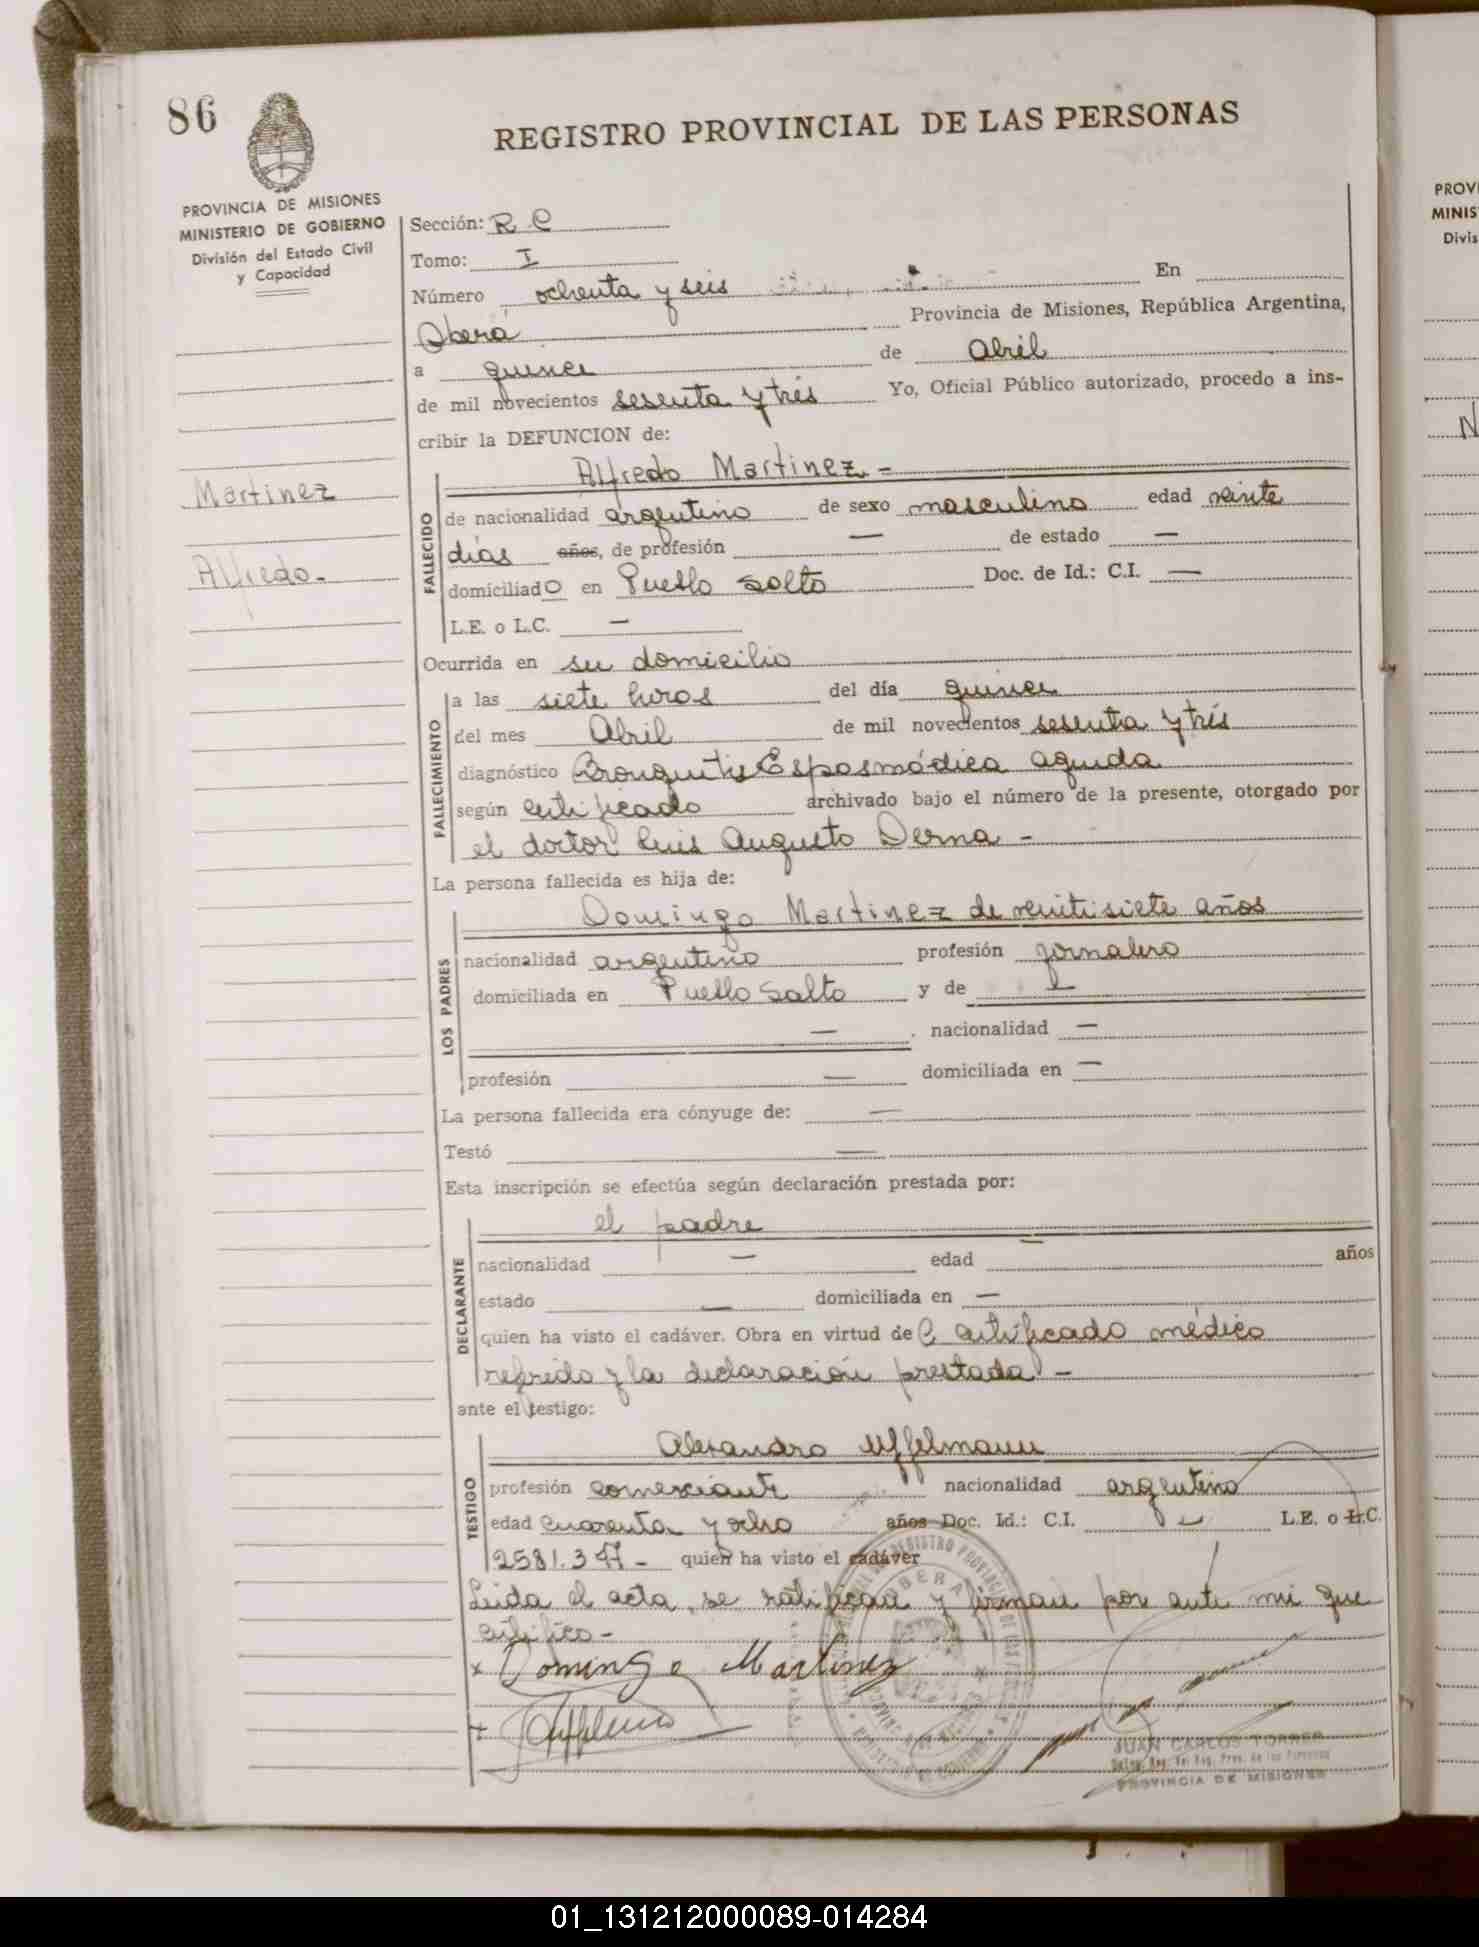 86
REGISTRO PROVINCIAL DE LAS PERSONAS
PROVINCIA DE MISIONES
MINISTERIO DE GOBIERNO
División del Estado Civil
y Capacidad
Martinez
Alfredo.-
Sección: R C
Tomo: I
Número ochenta y seis En
Oberá Provincia de Misiones, República Argentina,
a quince de Abril
de mil novecientos sesenta y trés Yo, Oficial Público autorizado, procedo a ins-
cribir la DEFUNCION de:
FALLECIDO
Alfredo Martinez -
de nacionalidad argentino de sexo masculino edad veinte
días años, de profesión — de estado —
domiciliado en Pueblo Salto Doc. de Id.: C.I. —
L.E. o L.C. —
Ocurrida en su domicilio
FALLECIMIENTO
a las siete horas del día quince
del mes Abril de mil novecientos sesenta y trés
diagnóstico Bronquitis Espasmódica aguda
según certificado archivado bajo el número de la presente, otorgado por
el doctor Luis Augusto Derna -
La persona fallecida es hija de:
LOS PADRES
Domingo Martinez de veintisiete años
nacionalidad argentino profesión jornalero
domiciliada en Pueblo Salto y de
— nacionalidad —
profesión — domiciliada en —
La persona fallecida era cónyuge de: —
Testó —
Esta inscripción se efectúa según declaración prestada por:
DECLARANTE
el padre
nacionalidad — edad — años
estado — domiciliada en —
quien ha visto el cadáver. Obra en virtud del certificado médico
referido y la declaración prestada -
ante el testigo:
TESTIGO
Alexandro Uffelmann
profesión comerciante nacionalidad argentino
edad cuarenta y ocho años Doc. Id.: C.I. — L.E. o L.C.
2581.347 - quien ha visto el cadáver
Leida el acta, se ratifican y firman por ante mi que
certifico -
x Domingo Martinez
+
OBERA
JUAN CARLOS TORRES
PROVINCIA DE MISIONES
PROVI
MINIS
Divis
N
01_131212000089-014284